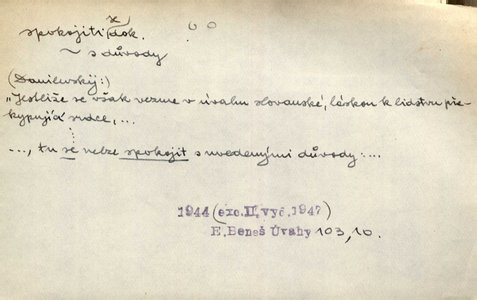 x
spokojiti dok.
~ s důvody
(Danilewskij:)
„Jestliže se však vezme v úvahu slovanské, láskou k lidstvu pře-
kypující srdce, ...
..., tu se nelze spokojit s uvedenými důvody: ...
1944 (exc. II. vyd. 1947)
E. Beneš Úvahy 103, 10.